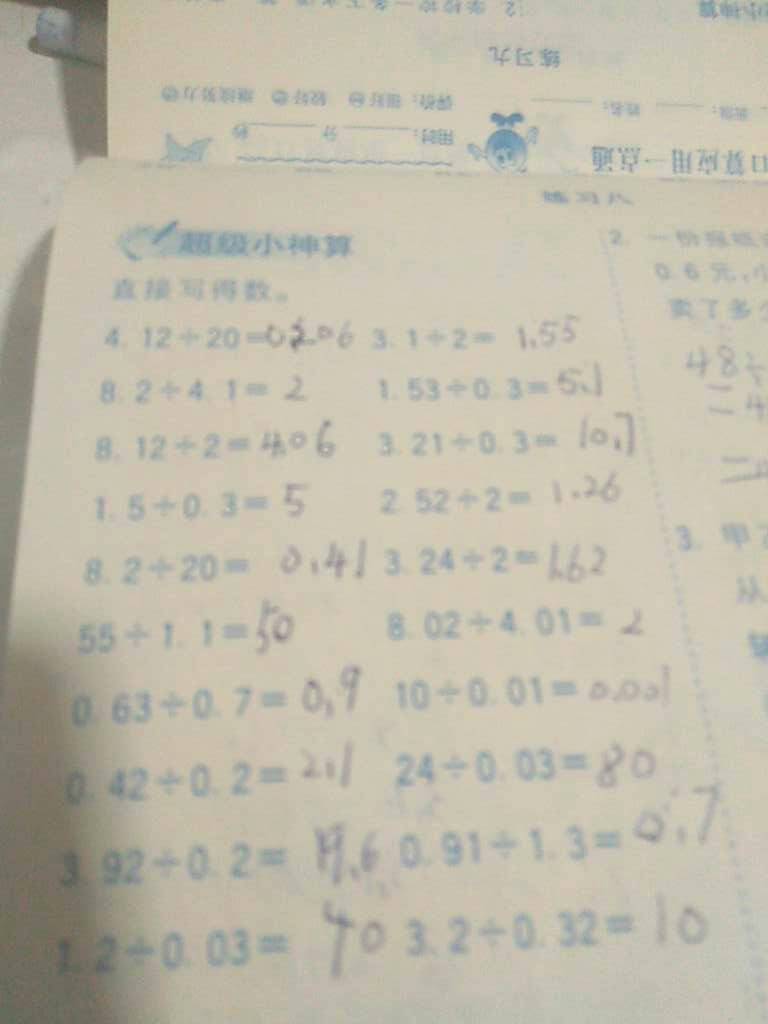 练习九
口算应用一点通
用时:______分______秒
练习八
超级小神算
直接写得数。
4.12÷20=0.206 3.1÷2=1.55
8.2÷4.1=2 1.53÷0.3=5.1
8.12÷2=4.06 3.21÷0.3=10.7
1.5÷0.3=5 2.52÷2=1.26
8.2÷20=0.41 3.24÷2=1.62
55÷1.1=50 8.02÷4.01=2
0.63÷0.7=0.9 10÷0.01=0.001
0.42÷0.2=2.1 24÷0.03=80
3.92÷0.2=19.6 0.91÷1.3=0.7
1.2÷0.03=40 3.2÷0.32=10
2. 一份报纸
0.6元,小
卖了多
48÷
=4
3. 甲
从